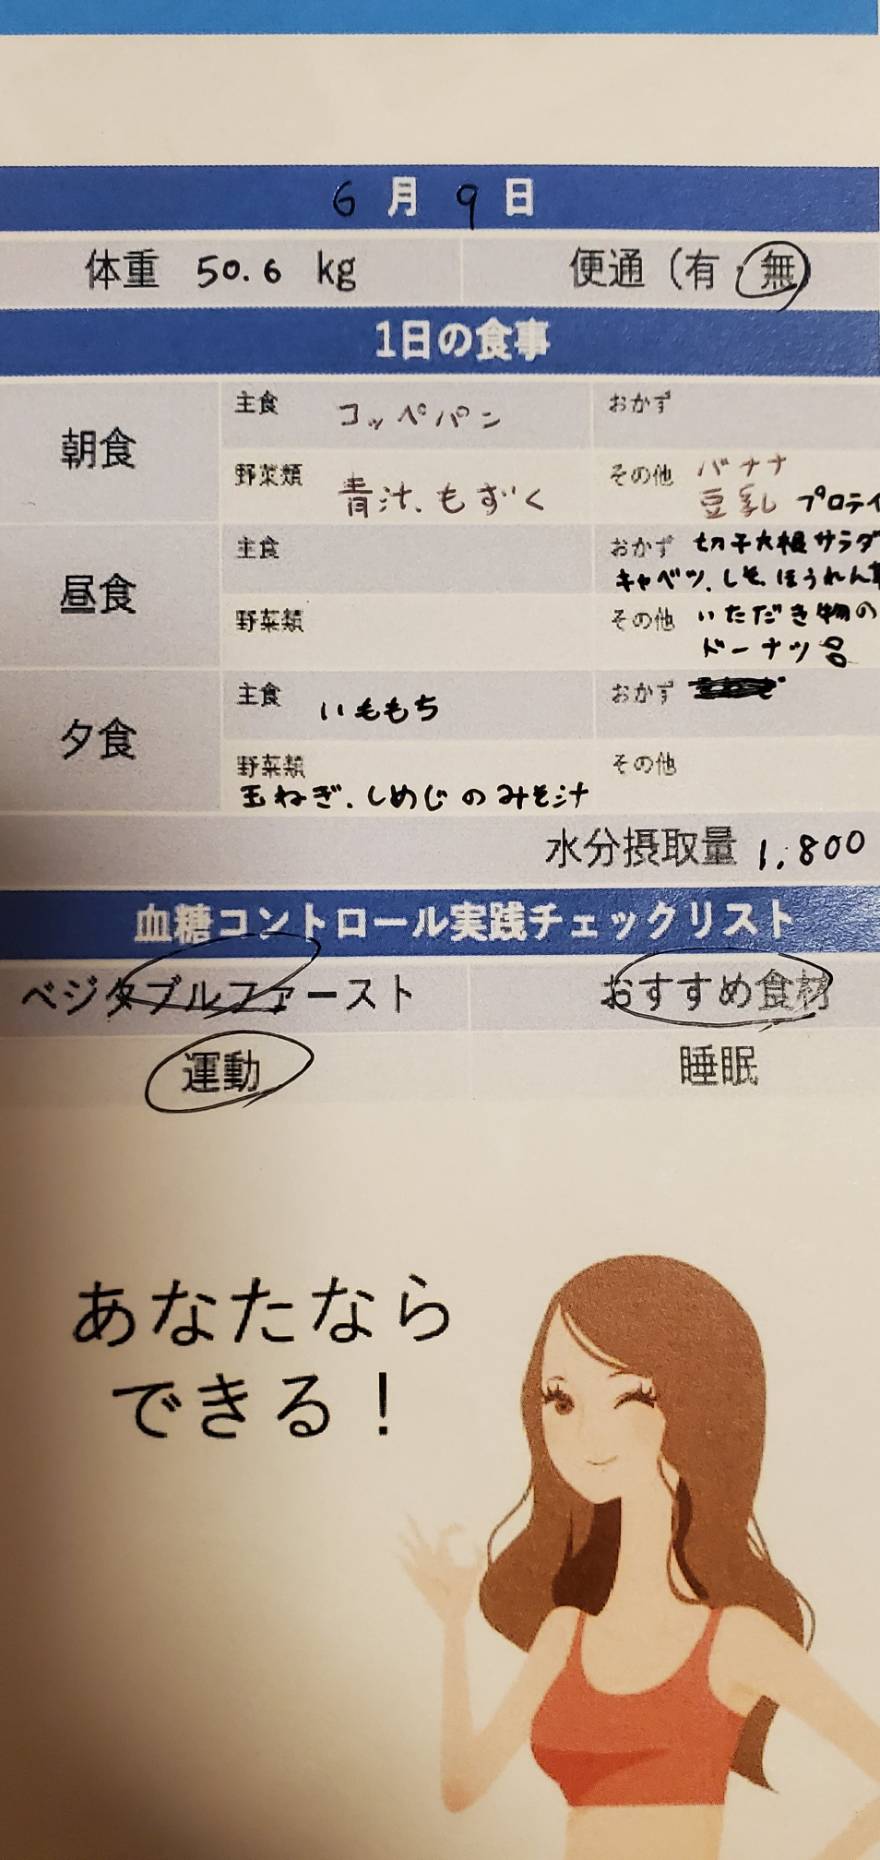 6月9日
体重 50.6 kg 便通（有・無）
1日の食事
朝食
主食 コッペパン
おかず
野菜類 青汁、もずく
その他 バナナ
豆乳 プロテイ
昼食
主食
おかず 切干大根サラダ
キャベツ、しそ、ほうれん草
野菜類
その他 いただき物の
ドーナツ
夕食
主食 いももち
おかず
野菜類
玉ねぎ、しめじのみそ汁
その他
水分摂取量 1.800
血糖コントロール実践チェックリスト
ベジタブルファースト おすすめ食材
運動 睡眠
あなたなら
できる！